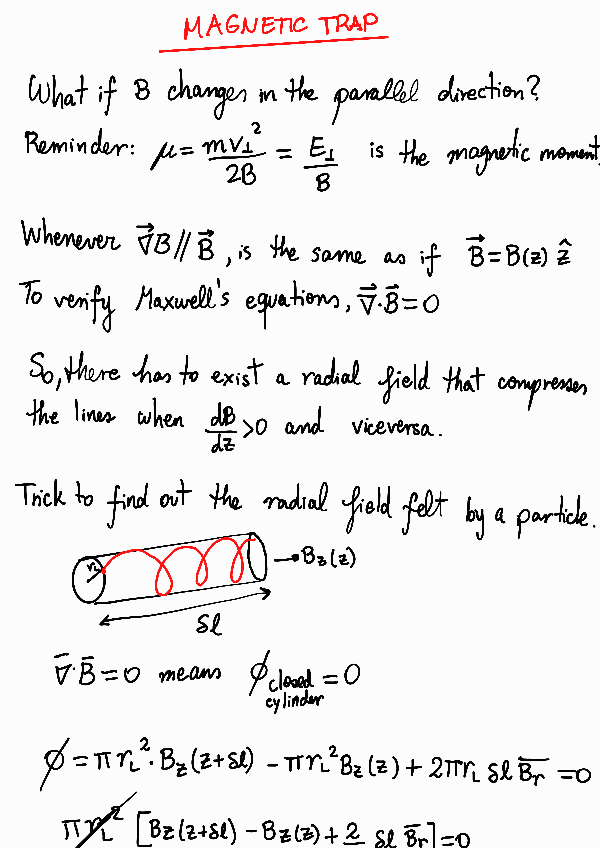 MAGNETIC TRAP
What if B changes in the parallel direction?
Reminder: μ = mv⊥²/2B = E⊥/B is the magnetic moment,
Whenever ∇⃗B // B⃗, is the same as if B⃗ = B(z) ẑ
To verify Maxwell's equations, ∇⃗·B⃗ = 0
So, there has to exist a radial field that compresses
the lines when dB/dz > 0 and viceversa.
Trick to find out the radial field felt by a particle.
r_L → B_z(z)
δl
∇̄·B̄ = 0 means ϕ closed cylinder = 0
ϕ = π r_L² · B_z(z+δl) − π r_L² B_z(z) + 2π r_L δl B̄_r = 0
π r_L² [B_z(z+δl) − B_z(z) + 2 δl B̄_r] = 0